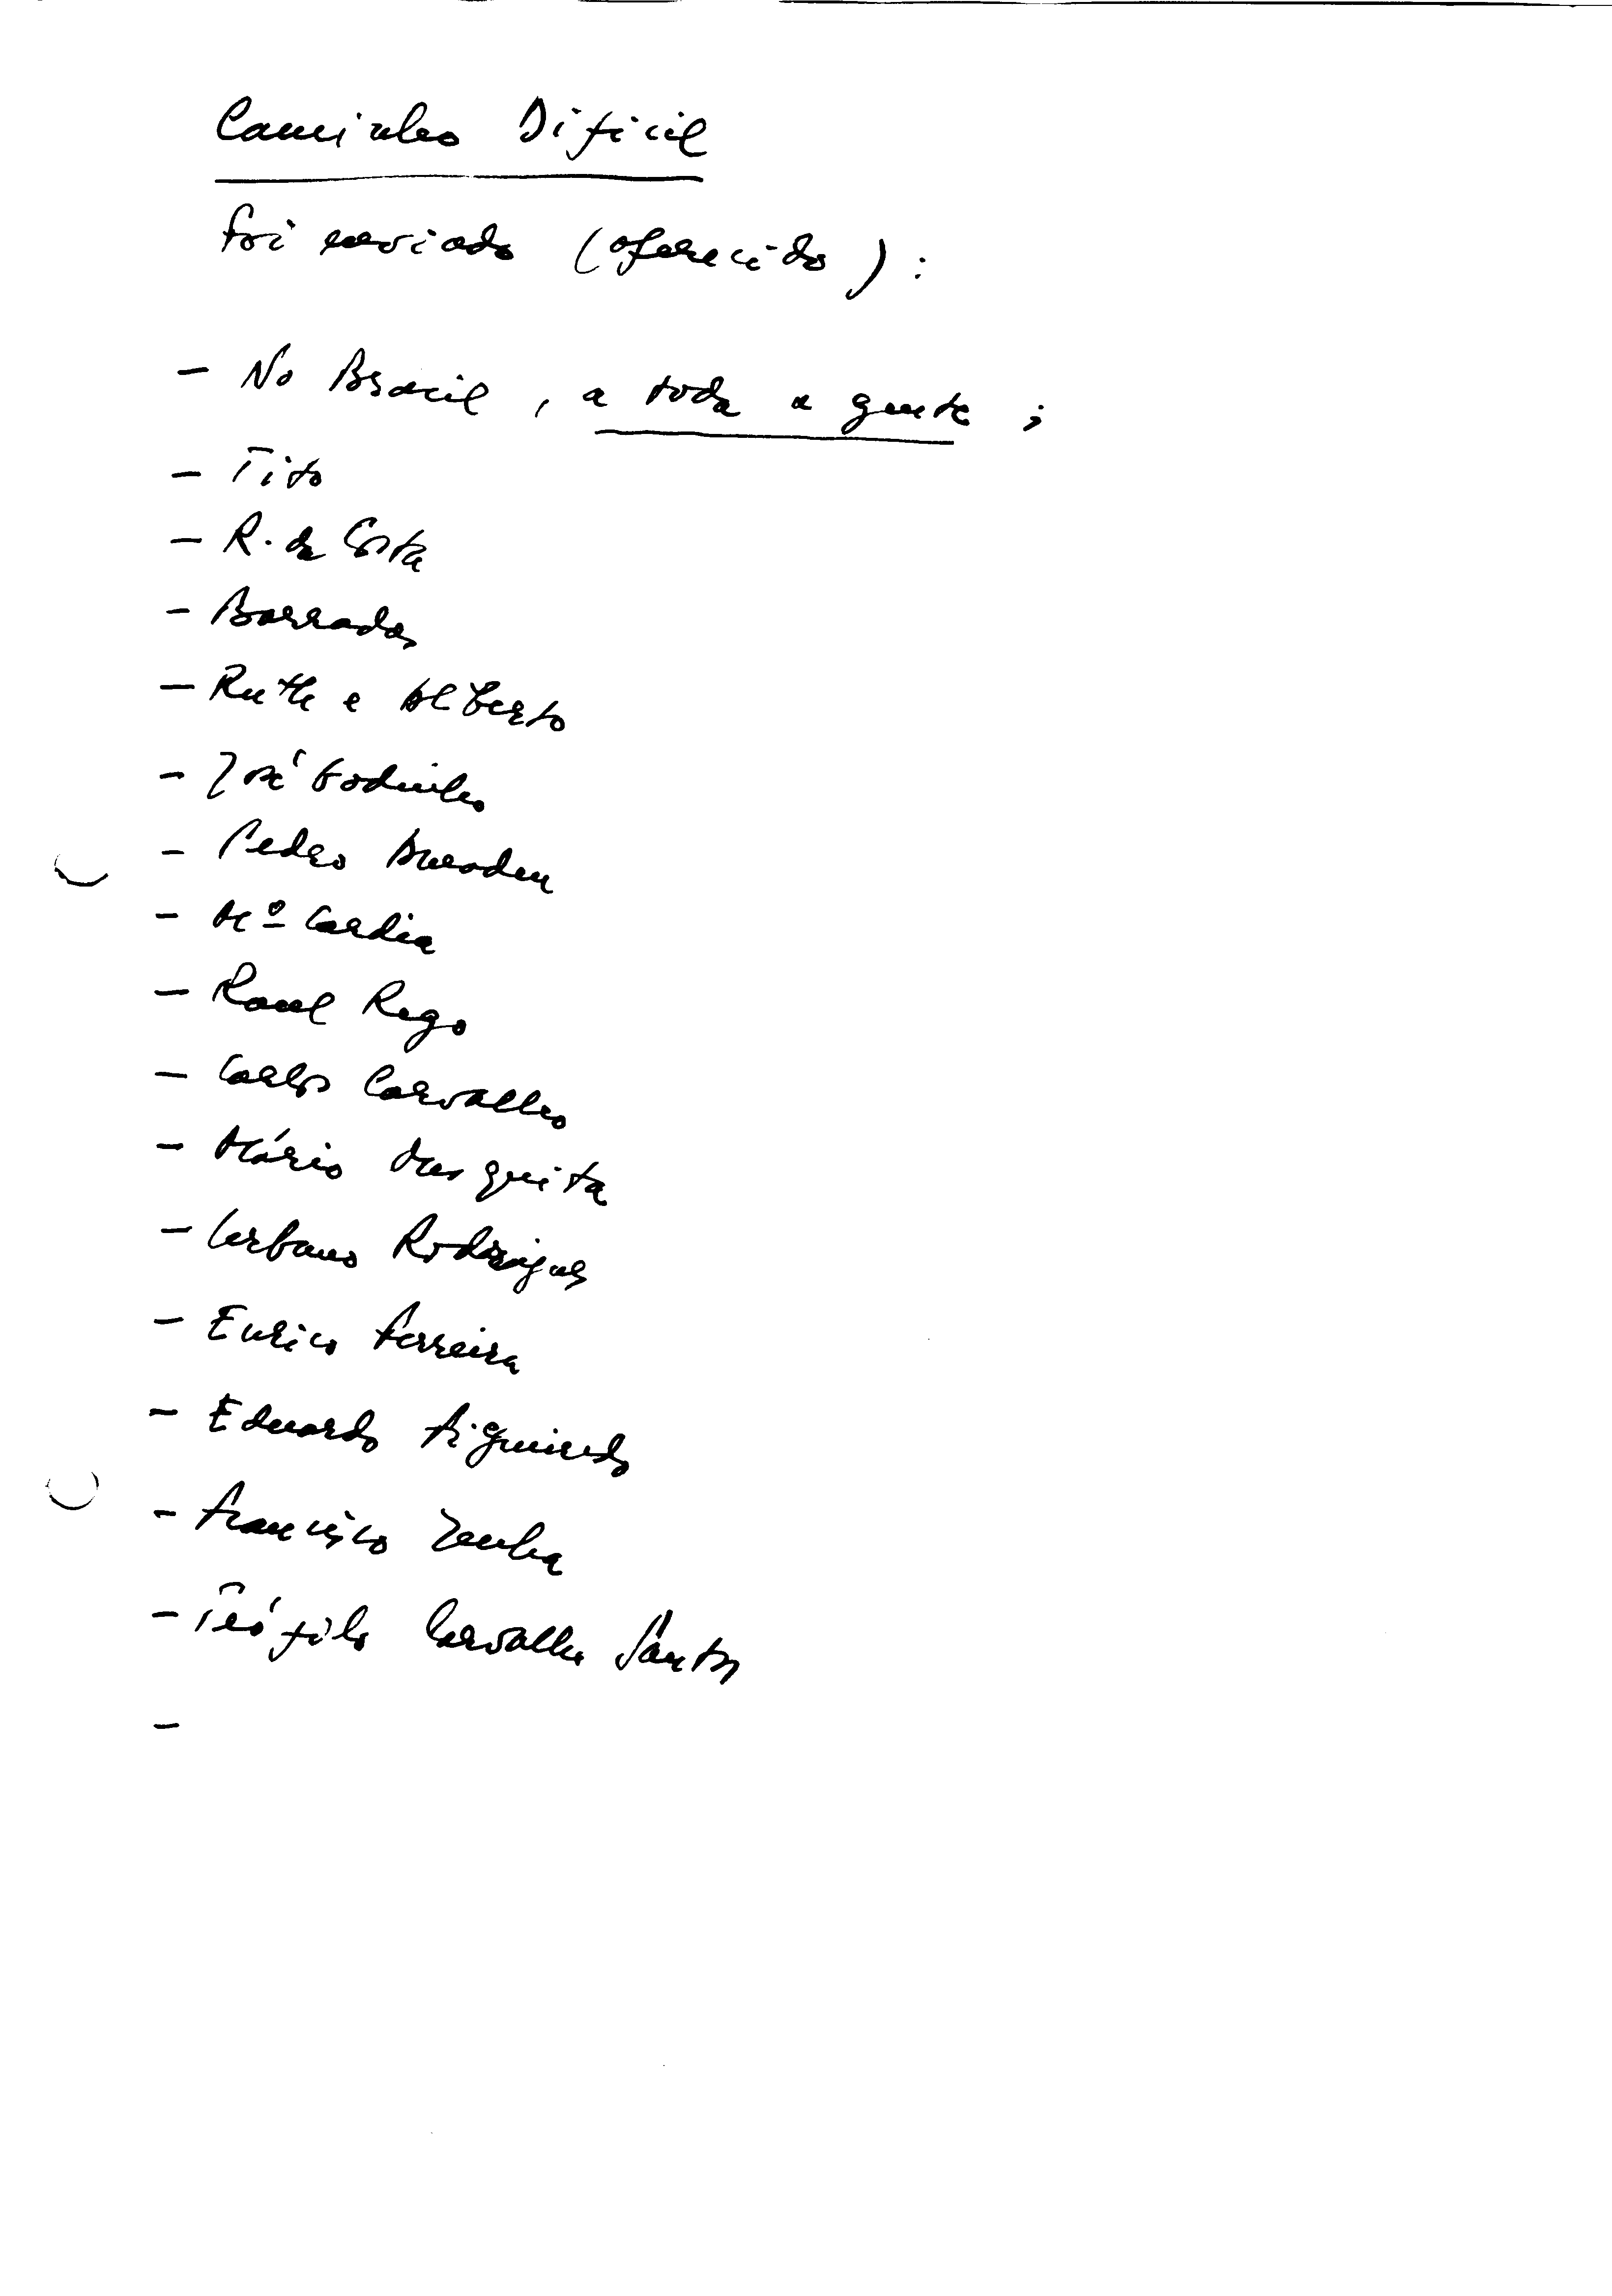 Caminho Difícil
foi enviado (oferecido):
- No Brasil, a toda a gente;
- Tito
- R. da Costa
- Barradas
- Ruth e Alberto
- José Godinho
- Pedro
- Mº Cardia
- Raul Rego
- Carlos Carvalho
- Mário Mesquita
- Urbano Rodrigues
- Eurico Ferreira
- Eduardo Figueiredo
- Francisco Zenha
- Teófilo Carvalho Santos
-